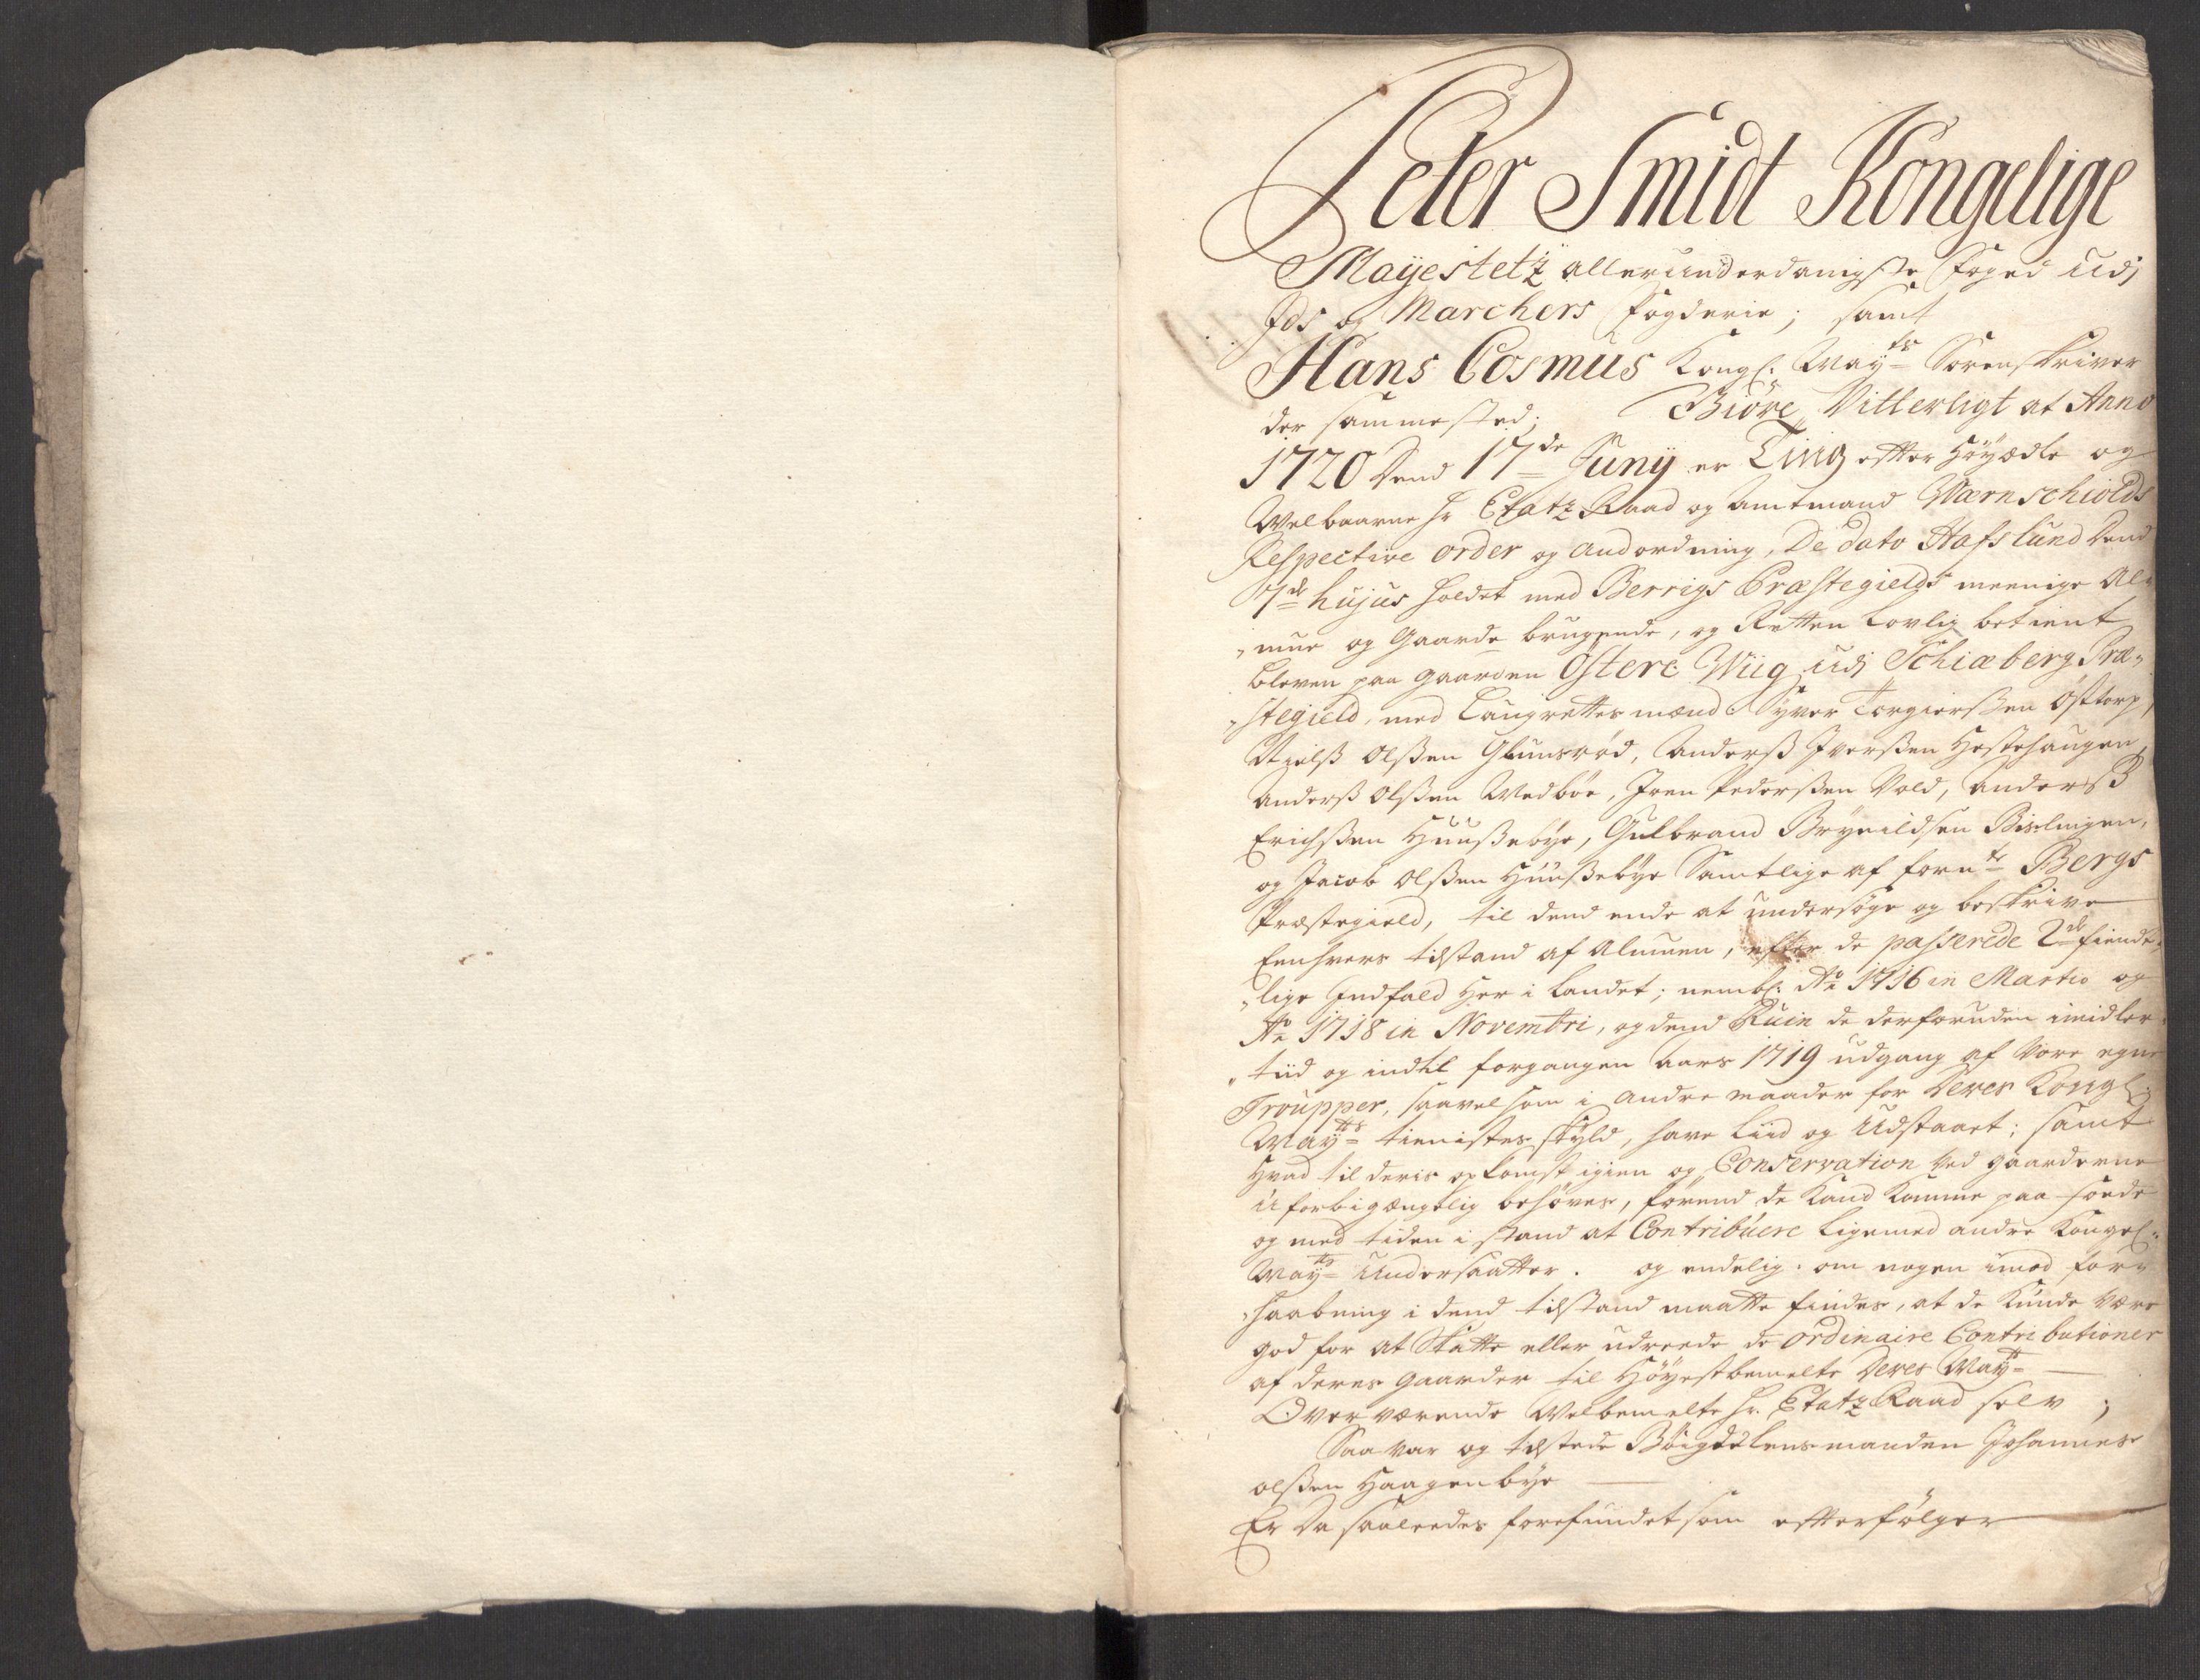 Peter Smidt Kongelige
Mayestetz allerunderdanigste Foged udj
Ids og Marchers Fogderie; samt
Hans Cosmus Kongl: Mayts Sorenskriver
der sammested; Giøre Vitterligt at Anno
1720 Dend 17de Junij er Ting effter Høyædle og
Welbaarne Hr Etatz Raad og Amtmand Wærnschiolds
Respective order og Andordning, De dato Hafslund Dend
7de hujus holdet med Berrigs Præstegields meenige Al-
„mue og Gaarde brugende, og Retten Lovlig betient
bleven paa gaarden Østere Wiig udj Schiæberg Præ-
„stegield, med Laugrettes mænd Syver Torgierssen Østtorp,
Nielss Olssen Glunsrød, Anderss Iverssen Hestehaugen,
Anderss Olssen Wedbøe, Joen Pederssen Vold, Anderss
Erichssen Huussebye, Gulbrand Brynildsen Bislingen,
og Jacob Olssen Huussebye Samtlige af fornte Bergs
Præstegield, til dend ende at undersøge og beskrive
Eenhvers tilstand af Almuen, efter de passerede 2de fiende-
„lige Indfald her i Landet; nembl: Ao 1716 in Martio og
Ao 1718 in Novembri, og dend Ruin de derforuden imidler-
„tiid og indtil forgangen aars 1719 udgang af Vore egne
Troupper, saavelsom i andre maader for Deres Kongl:
Mayts tienistes skyld, have Liid og Udstaaet; samt
Hvad til deris opkomst igien og Conservation ved gaarderne
uforbigængelig behøves,førend de kand komme paa fode
og med tiden i stand at Contribuere ligemed andre Kongel:
Mayts Undersaatter. og endelig, om nogen imod for-
„haabning i dend tilstand maatte findes, at de kunde være
god for at Skatte eller udreede de Ordinaire Contributioner
af deres gaarder til Høyestbemelte Deres Mayt
Overværende Welbemelte Hr. Etatz Raad selv;
Saa var og tilstede Bøigdelensmanden Johannes
Olssen Haagenbye
Er da saaleedes forefundet som effterfølger